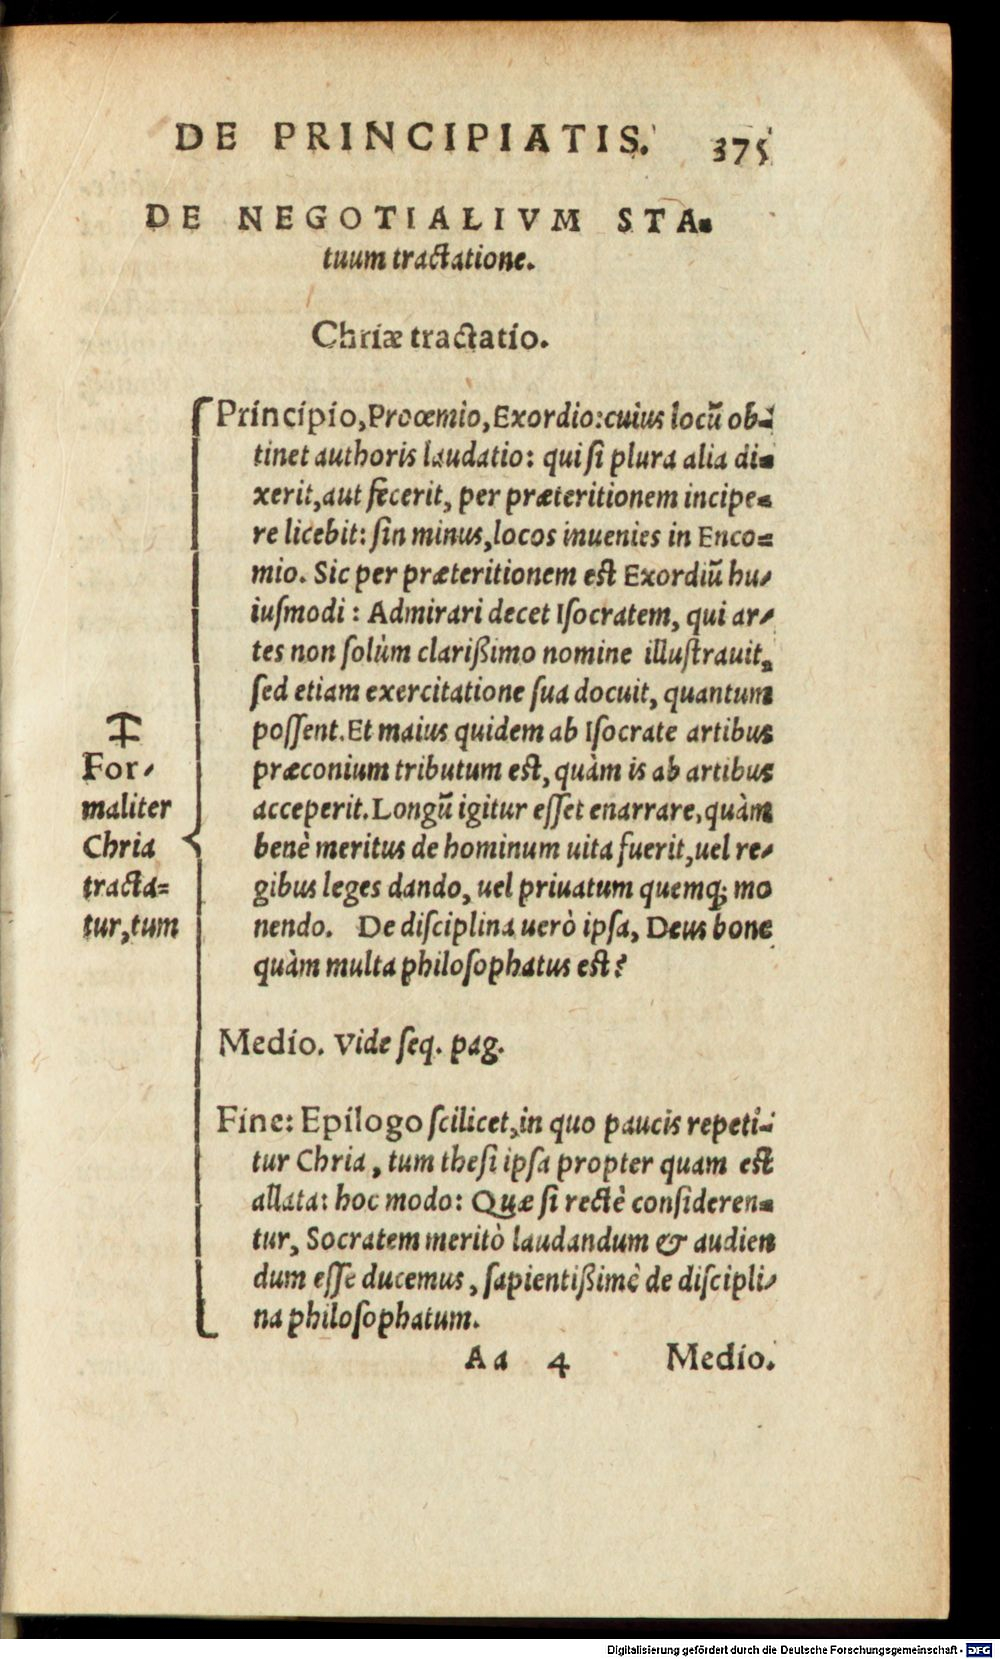 DE PRINCIPIATIS. 375
DE NEGOTIALIVM STA-
tuum tractatione.
Chriæ tractatio.
Principio, Proœmio, Exordio: cuius locū ob-
tinet authoris laudatio: qui si plura alia di-
xerit, aut fecerit, per præteritionem incipe-
re licebit: sin minus, locos inuenies in Enco-
mio. Sic per præteritionem est Exordiū hu-
iusmodi: Admirari decet Isocratem, qui ar-
tes non solùm clarißimo nomine illustrauit,
sed etiam exercitatione sua docuit, quantum
possent. Et maius quidem ab Isocrate artibus
præconium tributum est, quàm is ab artibus
acceperit. Longū igitur esset enarrare, quàm
benè meritus de hominum uita fuerit, uel re-
gibus leges dando, uel priuatum quemq; mo
nendo. De disciplina uerò ipsa, Deus bone
quàm multa philosophatus est?
For-
maliter
Chria
tracta=
tur, tum
Medio. Vide seq. pag.
Fine: Epilogo scilicet, in quo paucis repeti-
tur Chria, tum thesi ipsa propter quam est
allata: hoc modo: Quæ si rectè consideren-
tur, Socratem meritò laudandum & audien
dum esse ducemus, sapientißimè de discipli-
na philosophatum.
Aa 4 Medio.
Digitalisierung gefördert durch die Deutsche Forschungsgemeinschaft - DFG